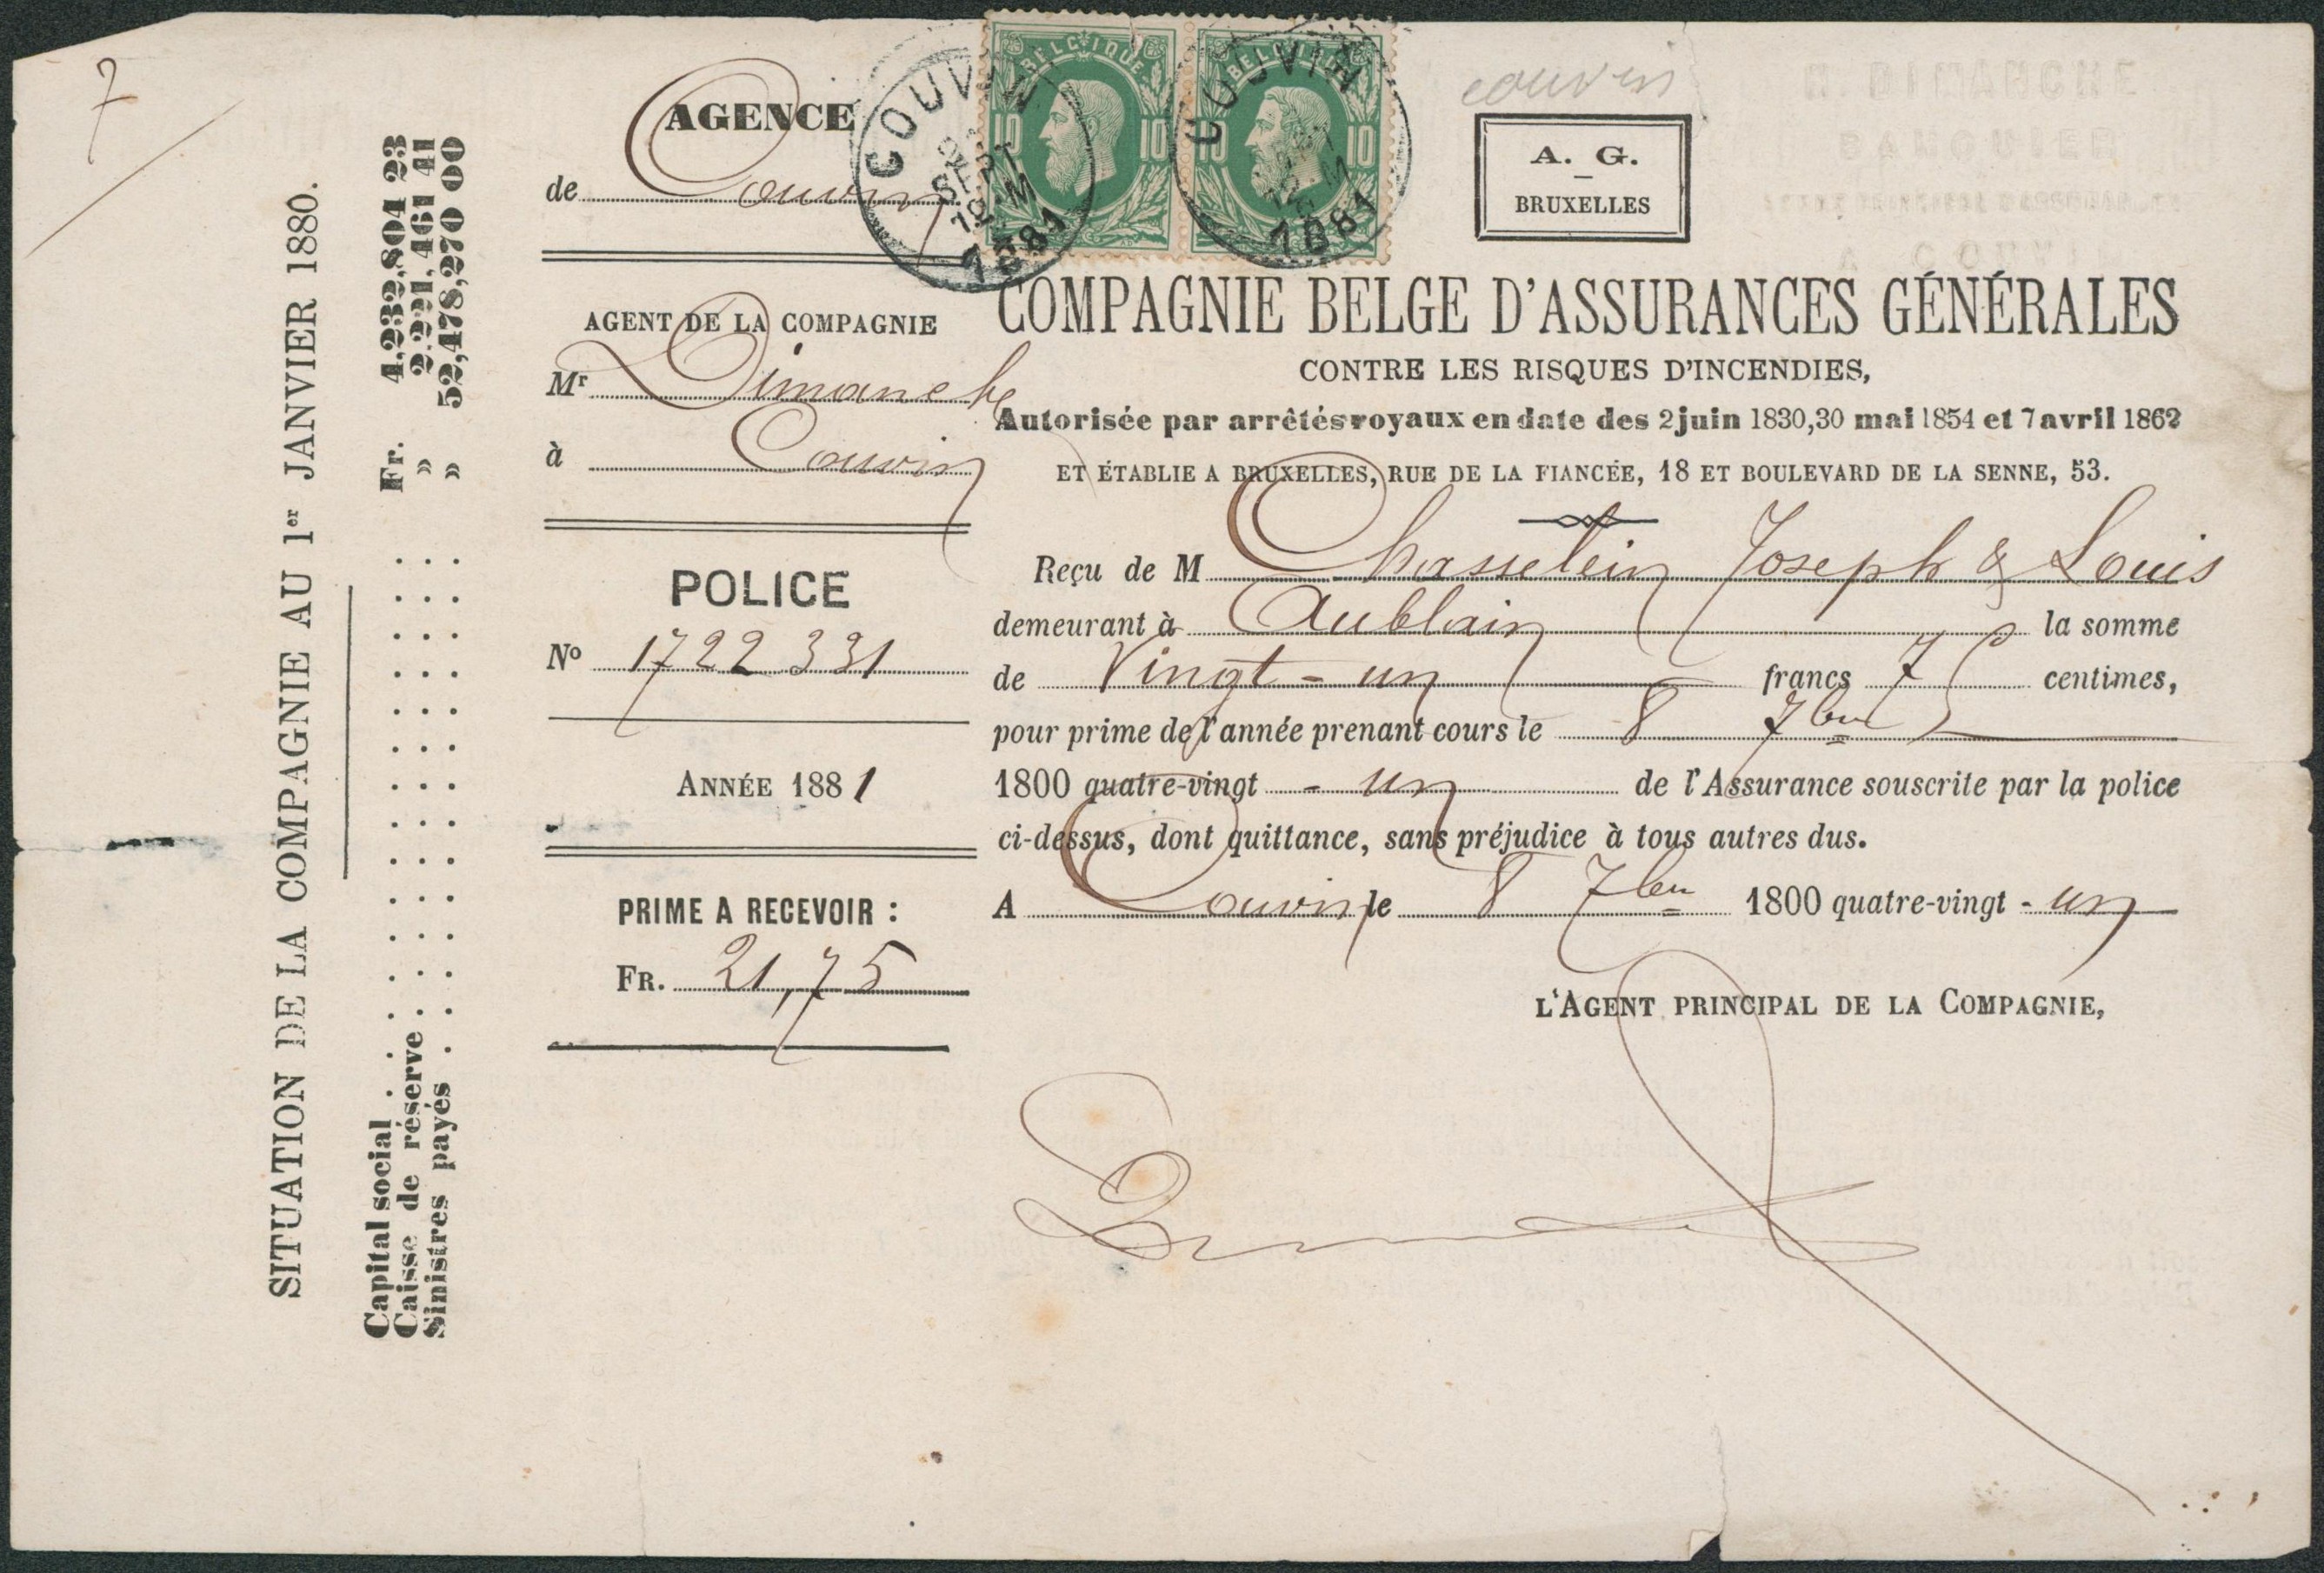 7
SITUATION DE LA COMPAGNIE AU 1er JANVIER 1880.
Capital social . . . Fr. 4,232,804 23
Caisse de réserve . . . » 2,221,461 41
Sinistres payés . . . » 52,478,270 00
AGENCE
de Couvin
AGENT DE LA COMPAGNIE
Mr Dimanche
à Couvin
POLICE
No 1722331
ANNÉE 1881
PRIME A RECEVOIR :
FR. 21,75
BELGIQUE
10 10
BELGIQUE
10 10
COUVIN
SEPT
12-M
1881
COUVIN
12-M
1881
couvin
A. G.
BRUXELLES
H. DIMANCHE
BANQUIER
A COUVIN
COMPAGNIE BELGE D'ASSURANCES GÉNÉRALES
CONTRE LES RISQUES D'INCENDIES,
Autorisée par arrêtés royaux en date des 2 juin 1830, 30 mai 1854 et 7 avril 1862
ET ÉTABLIE A BRUXELLES, RUE DE LA FIANCÉE, 18 ET BOULEVARD DE LA SENNE, 53.
Reçu de M Chasselein Joseph & Louis
demeurant à Aublain la somme
de Vingt-un francs 75 centimes,
pour prime de l'année prenant cours le 8 7bre
1800 quatre-vingt - un de l'Assurance souscrite par la police
ci-dessus, dont quittance, sans préjudice à tous autres dus.
A Couvin le 8 7bre 1800 quatre-vingt - un
L'AGENT PRINCIPAL DE LA COMPAGNIE,